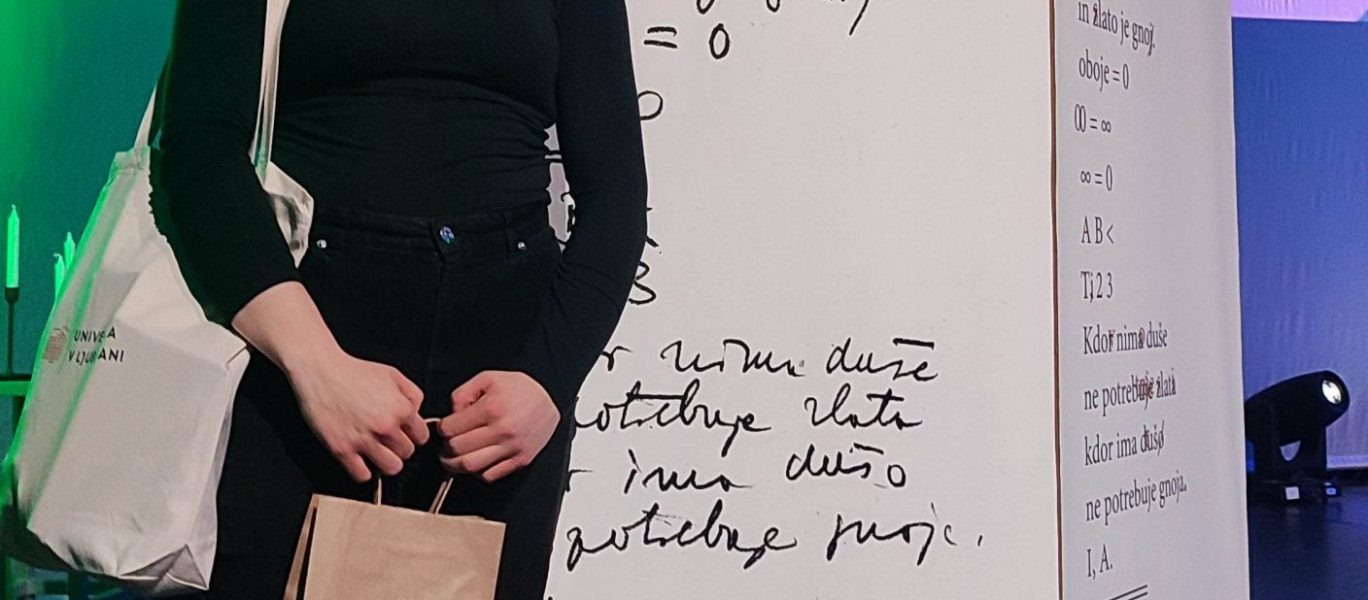 UNIVE A
V LJU ANI
= 0
0
=
3
r nima duše
potrebuje zlata
r ima dušo
potrebuje gnoja.
in zlato je gnoj.
oboje = 0
00 = ∞
∞ = 0
A B <
1, 2 3
Kdor nima duše
ne potrebuje zlata
kdor ima dušo
ne potrebuje gnoja.
I, A.